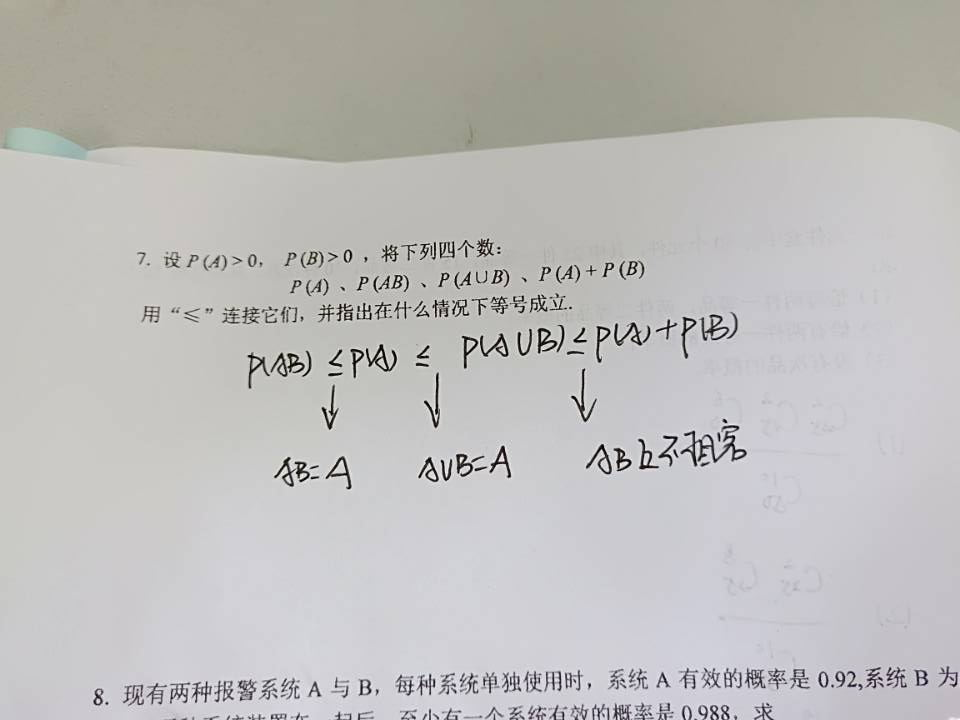 7. 设 P (A) > 0, P (B) > 0 ,将下列四个数:
P (A) 、P (AB) 、P (A∪B) 、P (A) + P (B)
用“≤”连接它们,并指出在什么情况下等号成立.
P(AB) ≤ P(A) ≤ P(A∪B) ≤ P(A) + P(B)
↓ ↓ ↓
AB=A A∪B=A AB互不相容
8. 现有两种报警系统 A 与 B,每种系统单独使用时,系统 A 有效的概率是 0.92,系统 B 为
起后,至少有一个系统有效的概率是 0.988,求